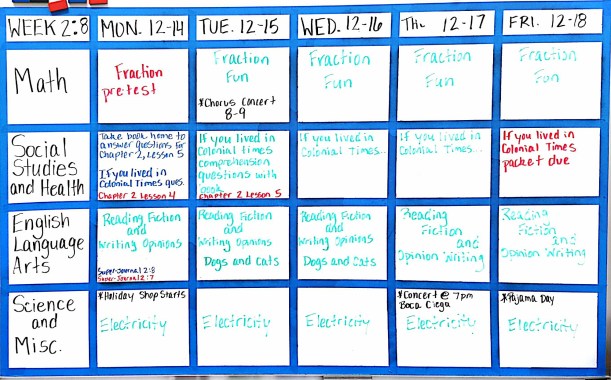 WEEK 2:8
MON. 12-14
TUE. 12-15
WED. 12-16
Thu 12-17
FRI. 12-18
Math
Fraction
pretest
Fraction
Fun
*Chorus Concert
8-9
Fraction
Fun
Fraction
Fun
Fraction
Fun
Social
Studies
and Health
Take book home to
answer questions for
Chapter 2, Lesson 5
If you lived in
Colonial Times ques.
Chapter 2 Lesson 4
If you lived in
Colonial times
comprehension
questions with
book
Chapter 2 Lesson 5
If you lived in
Colonial Times...
If you lived in
Colonial Times...
If you lived in
Colonial Times
packet due
English
Language
Arts
Reading Fiction
and
Writing Opinions
Super-Journal 2:8
Super-Journal 2:7
Reading Fiction
and
Writing Opinions
Dogs and Cats
Reading Fiction
and
Writing Opinions
Dogs and Cats
Reading
Fiction
and
Opinion Writing
Reading
Fiction
and
Opinion Writing
Science
and
Misc.
*Holiday Shop Starts
Electricity
Electricity
Electricity
*Concert @ 7pm
Boca Ciega
Electricity
*Pajama Day
Electricity